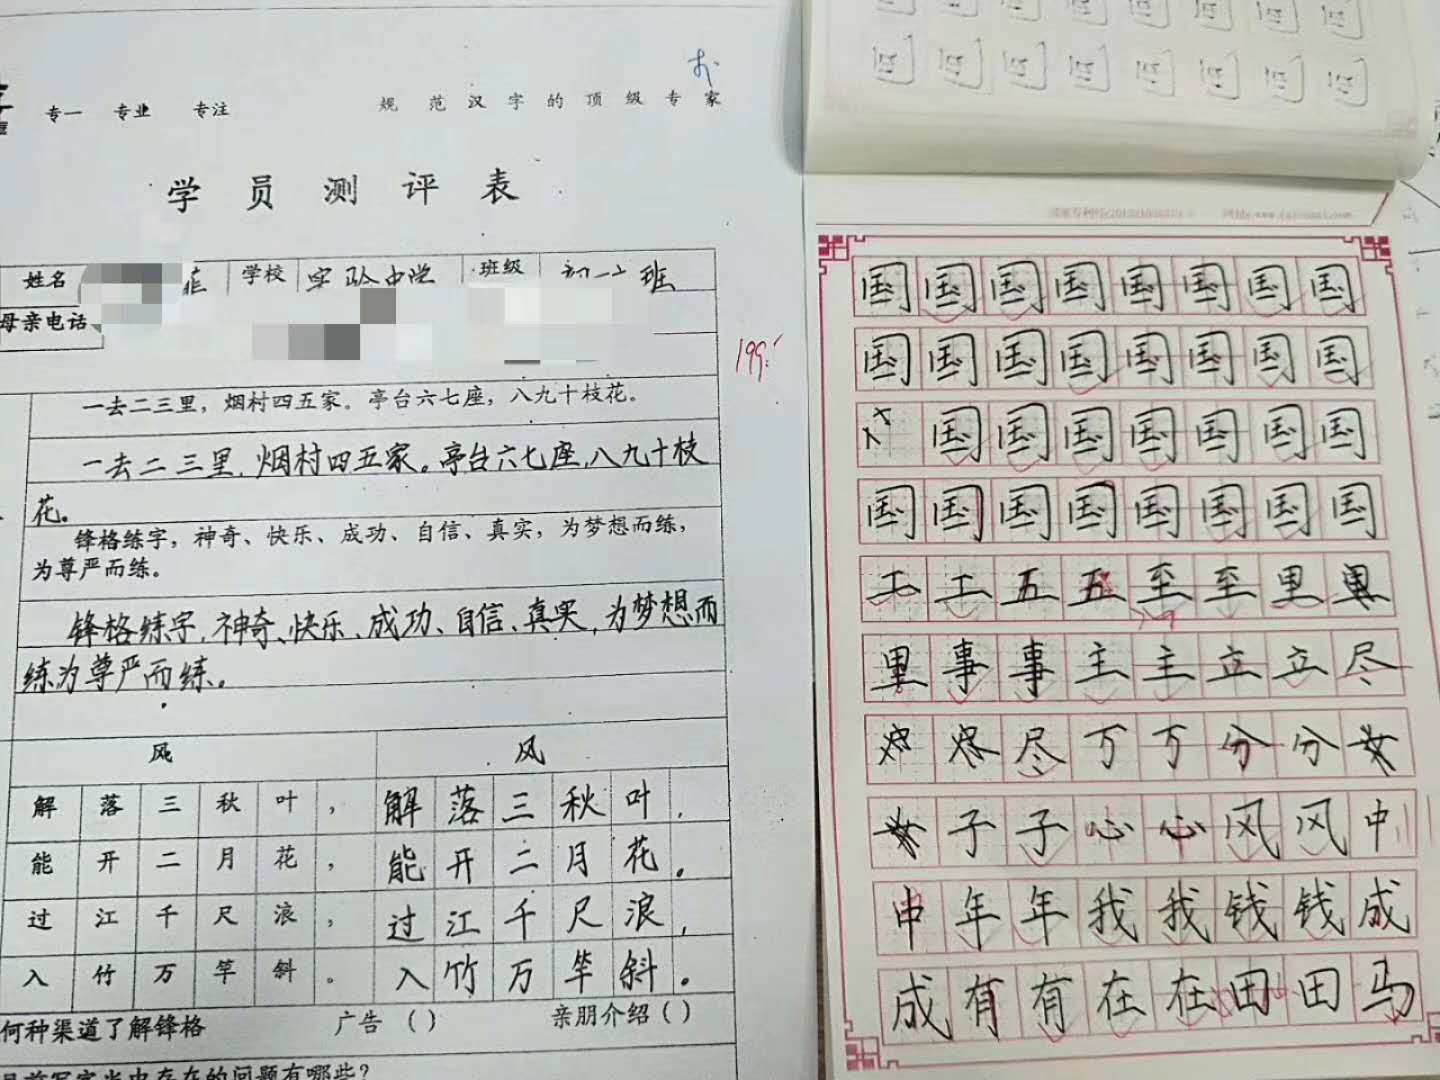 专一 专业 专注
规范汉字的顶级专家
学员测评表
姓名 菲 学校 实验中学 班级 初一 班
母亲电话
199
一去二三里，烟村四五家。亭台六七座，八九十枝花。
一去二三里,烟村四五家。亭台六七座,八九十枝
花.
锋格练字，神奇、快乐、成功、自信、真实，为梦想而练，
为尊严而练。
锋格练字,神奇、快乐、成功、自信、真实,为梦想而
练为尊严而练。
风 风
解落三秋叶， 解落三秋叶,
能开二月花， 能开二月花。
过江千尺浪， 过江千尺浪,
入竹万竿斜。 入竹万竿斜。
何种渠道了解锋格 广告（） 亲朋介绍（）
目前写字当中存在的问题有哪些？
国国国国国国国国
国国国国国国国国
国国国国国国国
国国国国国国国国
工工五五至至里里
里事事主主立立尽
尽万万分分
子子心心风风中
中年年我我钱钱成
成有有在在田田马